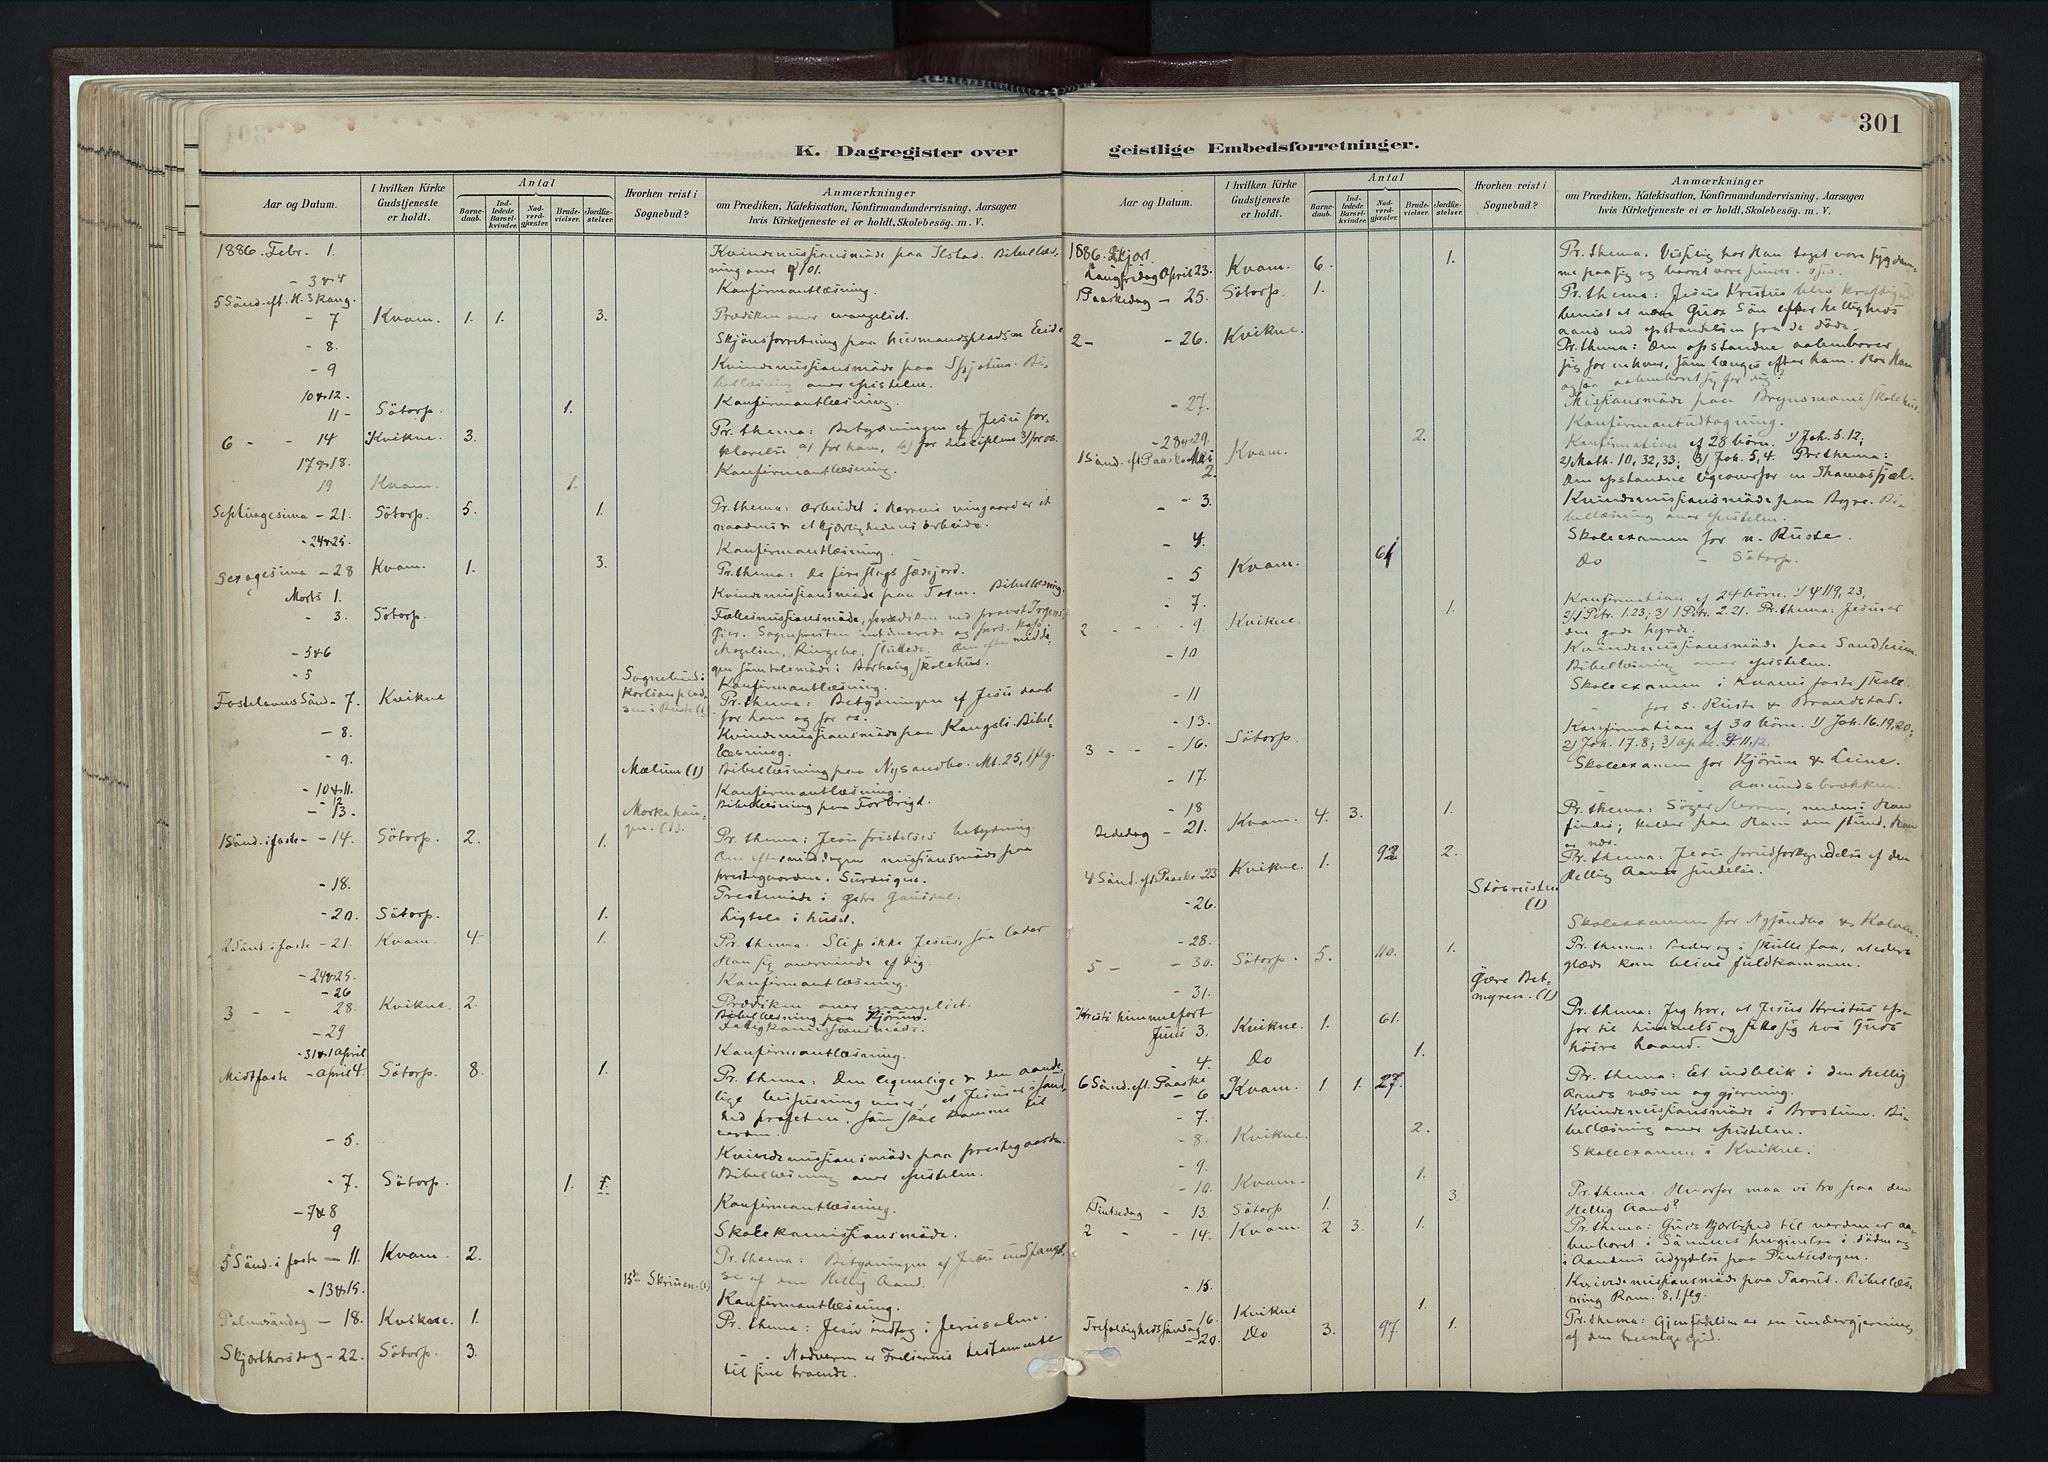 301
K. Dagregister over geistlige Embedsforretninger.
Aar og Datum.
I hvilken Kirke Gudstjeneste er holdt.
Antal
Barne-daab.
Ind-ledede Barsel-kvinder.
Nad-verd-gjæster.
Brude-vielser.
Jordfæ-stelser.
Hvorhen reist i Sognebud?
Anmærkninger
om Prædiken, Katekisation, Konfirmandundervisning, Aarsagen
hvis Kirketjeneste ei er holdt, Skolebesøg. m. V.
1886. Febr. 1. Kvindemissionsmøde paa Ilstad. Bibellæs-
ning over
- 3 & 4 Konfirmantlæsning.
5 Sönd. eft. H. 3 Kong.
- 7 Kvam. 1. 1. 3. Prædiken over evangeliet.
- 8. Skjönsforretning paa husmandspladsen Eide
- 9 Kvindemissionsmöde paa Bi-
bellæsning over epistelen.
10 & 12. Konfirmantlæsning.
11 - Sötorp. 1.
6 - - 14 Kvikne. 3. Pr. thema: Betydningen af Jesu for-
klarelse a) for ham, b) for disciplene 3) for os.
17 & 18. Konfirmantlæsning.
19 Kvam. 1.
Septuagesima - 21. Sötorp. 5. 1. Pr. thema: arbeidet i Herrens vingaard er et
naadens & et kjærlighedens arbeide.
- 24 & 25. Konfirmantlæsning.
Sexagesima - 28 Kvam. 1. 3. Pr. thema: De fire slags sædejord.
Marts 1. Kvindemissionsmöde paa Bibellæsning
- 3. Sötorp. Fællesmissionsmöde, prædiken ved provst
Sognepresten
Ringebo, sluttede. Om efter midda-
gen samtalemöde i skolehus.
- 5 & 6
- 5 Sognebud i Konfirmantlæsning.
Fastelavns Sönd - 7. Kvikne Pr. thema: Betydningen af Jesu daab
for ham og for os.
- 8. Kvindemissionsmöde paa Kongsli. Bibel-
læsning.
- 9. Mælum (1) Bibellæsning paa Nysandbo. Mt. 25, 1 flg.
- 10 & 11. Konfirmantlæsning.
- 12 Bibellæsning paa Forbrigd.
- 13. (1).
1 Sönd. i faste - 14. Sötorp. 2. 1. Pr. thema: Jesu fristelses betydning.
Om eftermiddagen missionsmöde paa
prestegaarden.
- 18. Prestemöde i Gausdal.
- 20. Sötorp. 1. Ligtale i huset.
2 Sönd. i faste - 21. Kvam. 4. 1. Pr. thema: Slip ikke Jesus, saa lader
Han sig overvinde af dig.
- 24 & 25. Konfirmantlæsning.
- 26
3 - - 28. Kvikne. 2. Prædiken over evangeliet.
Bibellæsning paa Kjörum.
- 29 Fattigkomissionsmöde.
- 31 & 1 April Konfirmantlæsning.
Midtfaste - April 4. Sötorp. 8. 1. Pr. thema: Den legemlige & den aande-
lige bespisning viser, at Jesus er i sand-
hed profeten, som skal komme til
verden.
- 5. Kvindemissionsmöde paa prestegaarden.
Bibellæsning over epistelen.
- 7. Sötorp. 1. 1.
- 7 & 8 Konfirmantlæsning.
9 Skolekomissionsmöde.
5 Sönd. i faste - 11. Kvam. 2. Pr. thema: Betydningen af Jesu undfangel-
se af den Hellig Aand.
- 13 & 15. 15de Skriuen. (1) Konfirmantlæsning.
Palmesöndag - 18. Kvikne. 1. Pr. thema: Jesu indtog i Jerusalem.
Skjærthorsdag - 22. Sötorp. 3. Nadveren er Frelserens testamente
til sine troende.
Aar og Datum.
I hvilken Kirke Gudstjeneste er holdt.
Antal
Barne-daab.
Ind-ledede Barsel-kvinder.
Nad-verd-gjæster.
Brude-vielser.
Jordfæ-stelser.
Hvorhen reist i Sognebud?
Anmærkninger
om Prædiken, Katekisation, Konfirmandundervisning, Aarsagen
hvis Kirketjeneste ei er holdt, Skolebesøg. m. V.
1886.
Langfredag April 23. Kvam. 6. 1. Pr. thema. Visselig har Han taget vore sygdom-
me paa sig og baaret vore
Paaskedag - 25. Sötorp. 1. Pr. thema: Jesus Kristus blev kraftigen
bevist at være Guds Sön efter helligheds
aand ved opstandelsen fra de döde.
2 - - 26. Kvikne. Pr. thema: Den opstandne aabenbarer
sig for enhver, som længes efter ham. Har Han
ogsaa aabenbaret sig for dig?
- 27. Missionsmöde paa skolehus.
Konfirmantudtagning.
- 28 & 29. 2.
1 Sönd. eft. Paaske Mai 2. Kvam. Konfirmation af 28 börn. 1) Joh. 5. 12;
2) Math. 10, 32, 33; 3) Joh. 5, 4. Pr. thema:
Den opstandne ligeoverfor en Thomassjæl.
- 3. Kvindemissionsmöde paa Bi-
bellæsning over epistelen.
- 4. Skoleexamen for n. Ruste.
- 5 Kvam. 61 Do - Sötorp.
- 7. 1. Konfirmation af 24 börn.
2 - - 9. Kvikne. 2) 1 Petr. 1.23; 3) 1 Petr. 2.21. Pr. thema: Jesus er
den gode hyrde.
- 10 Kvindemissionsmöde paa Sandheim.
Bibellæsning over epistelen.
- 11 Skoleexamen i Kvams faste skole.
- for s. Ruste & Brandstad.
- 13. Konfirmation af 30 börn. 1) Joh. 16. 19, 20;
3 - - 16. Sötorp. 2) Joh. 17. 8; 3)
- 17. Skoleexamen for Kjörum & Leine.
- 18 - Amundsbrækken.
Bededag - 21. Kvam. 4. 3. 1. Pr. thema: Söger Herren, medens Han
findes; kalder paa Ham den stund, Han
er nær.
4 Sönd. eft. Paaske - 23 Kvikne. 1. 92 2. Pr. thema: Jesu forudforkyndelse af den
Hellig Aands sendelse.
- 26. (1)
- 28. Skoleexamen for Nysandbo &
5 - - 30. Sötorp. 5. 110. 1. Pr. thema: Beder og i skulle faa, at eders
glæde kan blive fuldkommen.
- 31. (1)
Kristi himmelfart
Juni 3. Kvikne. 1. 61. Pr. thema: Jeg tror, at Jesus Kristus op-
for til himmels og sidder hos Guds
höire haand.
- 4. Do 1.
6 Sönd. eft. Paaske
- 6 Kvam. 1 1. 27. Pr. thema: Et indblik i den Hellig
Aands væsen og gjerning.
- 7. Kvindemissionsmöde i Brostuen. Bi-
bellæsning over epistelen.
- 8. Kvikne. 2.
- 9. Skoleexamen i Kvikne.
- 10. Kvam. 1.
Pintsedag - 13. Sötorp 1. 3. Pr. thema: Hvorfor maa vi tro paa den
Hellig Aand?
2 - - 14. Kvam 2 3. 1. Pr. thema: Guds kjærlighed til verden er aa-
benbaret i Sönnens hengivelse i döden og
i Aandens udgydelse paa Pintsedagen.
- 15. Kvindemissionsmöde paa Bibellæs-
ning Rom. 8, 1 flg.
- 16. Kvikne 1.
Trefoldighedssöndag - 20. Do 3. 97. 1. Pr. thema: Gjenfödelsen er en undergjerning
af den treenige Gud.